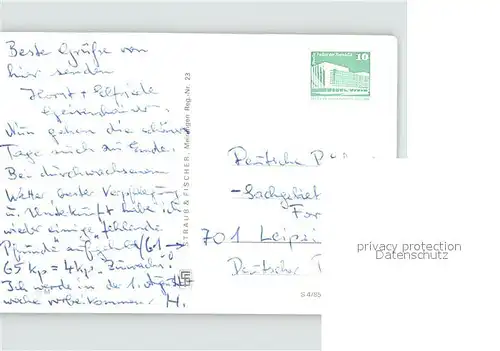 Beste Grüße von
hier senden
Horst + Elfriede
Nun gehen die schönen
Tage auch zu Ende.
Bei durchwachsenem
Wetter, bester Verpflegung
u. Unterkunft habe ich
wieder einige "fehlende
Pfunde" aufgeholt (61 →
65 kp = 4 kp. Zuwachs!
Ich werde in der 1. August
woche vorbeikommen. H.
STRAUB & FISCHER · Meiningen Reg.-Nr. 23
10
Deutsche
-Sachgebiet
For
701 Leipzi
Deutscher
S 4/85
privacy protection
Datenschutz